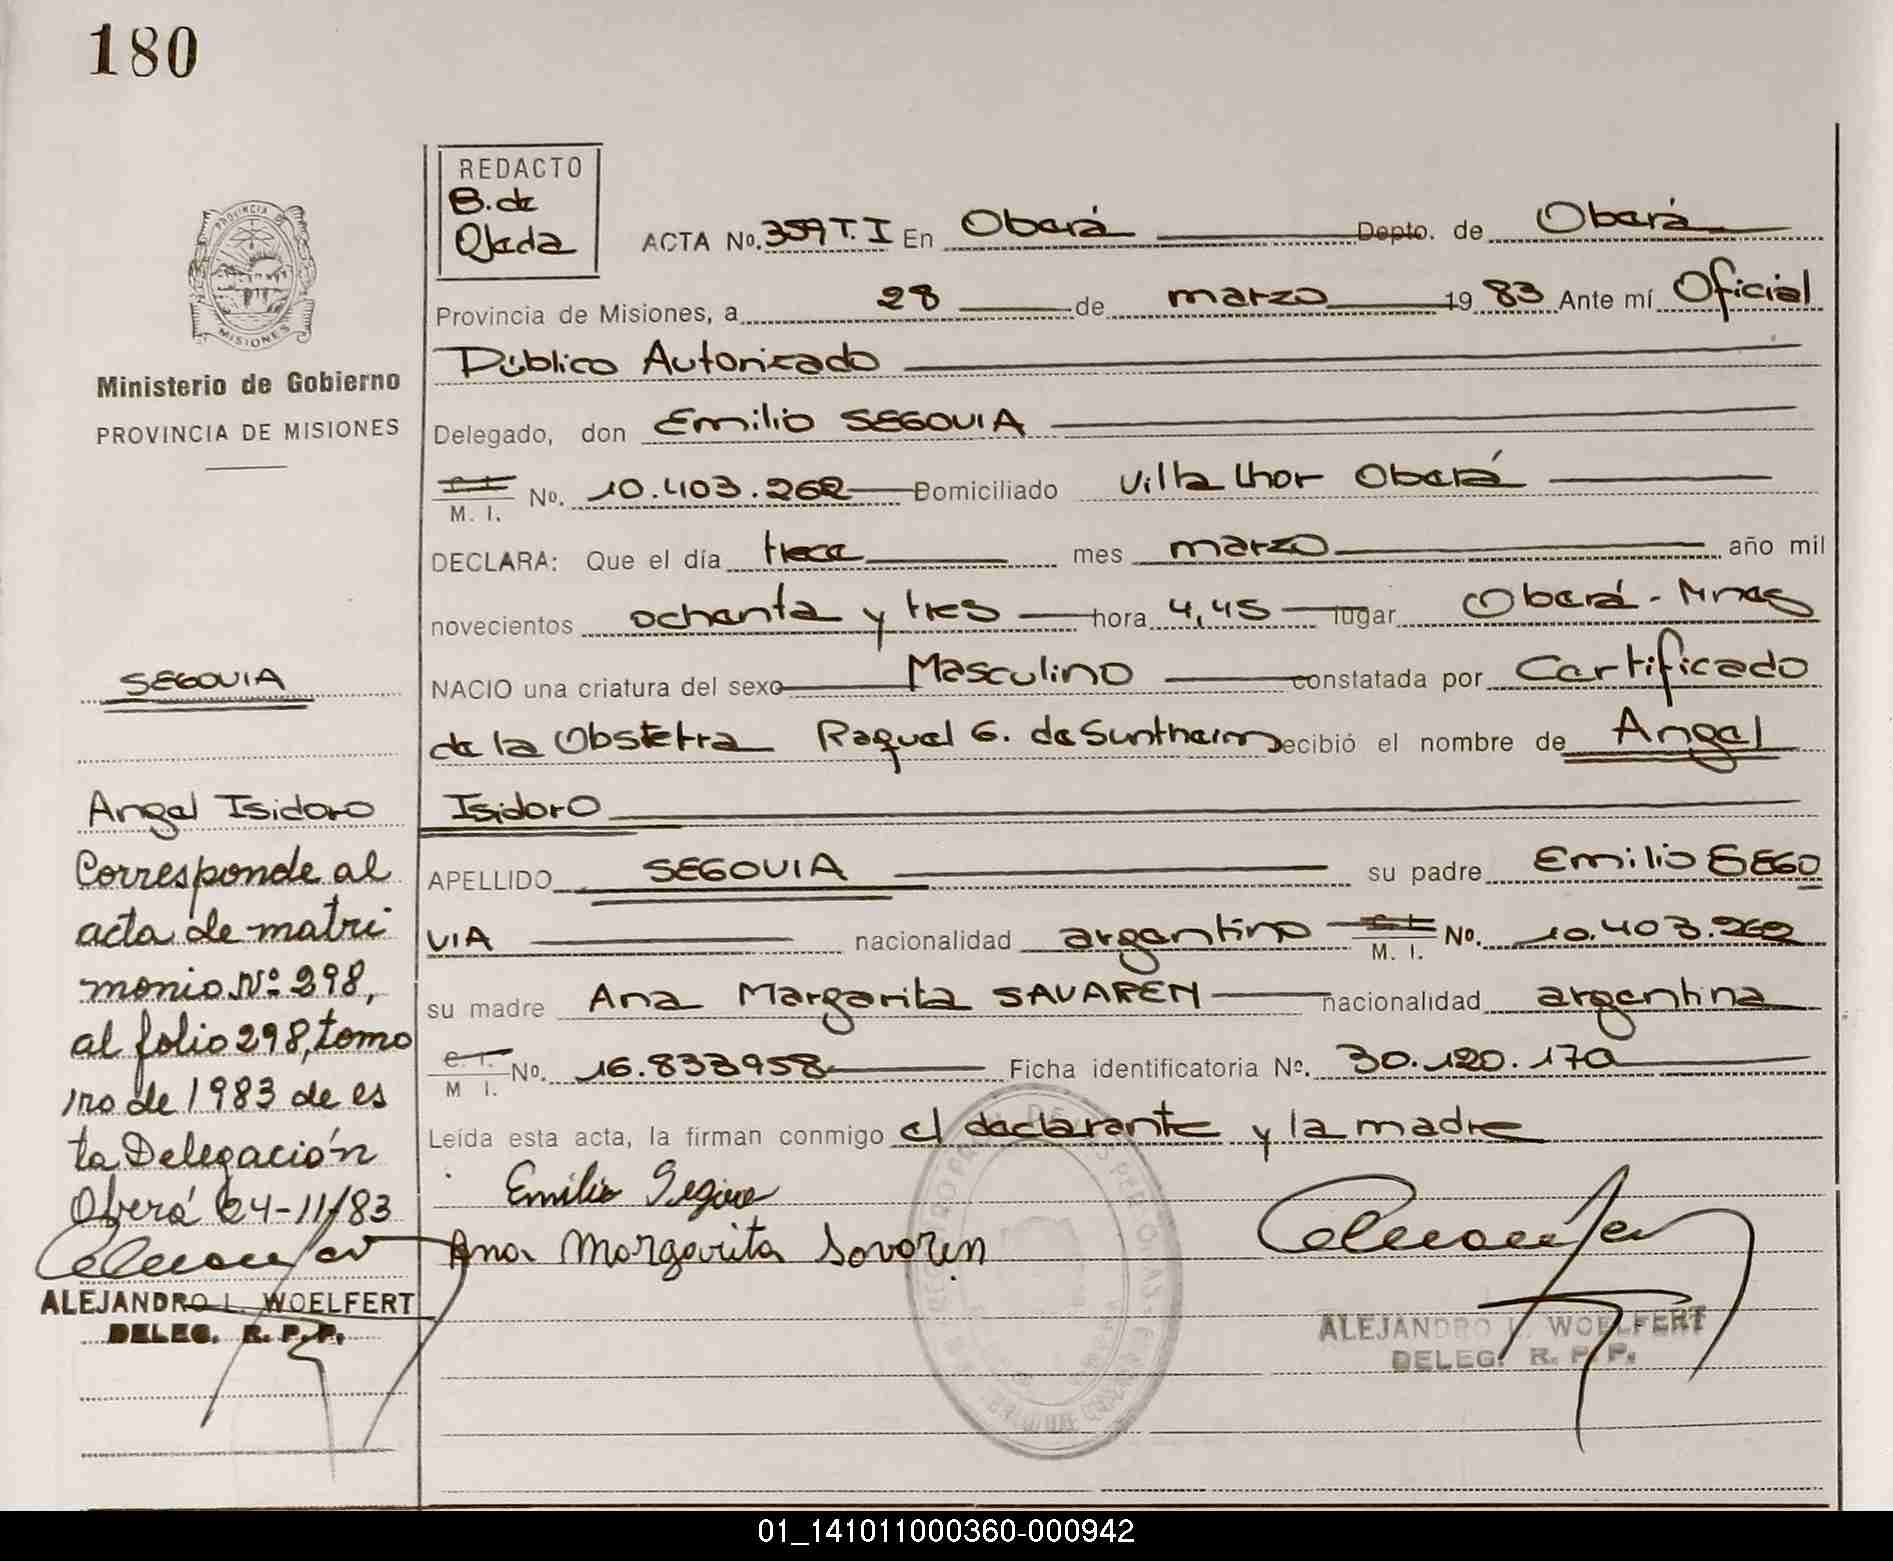 180
REDACTO
B. de
Ojeda
ACTA No. 359 T. I En Oberá Depto. de Oberá
Provincia de Misiones, a 28 de marzo 19 83 Ante mí Oficial
Público Autorizado
Delegado, don Emilio SEGOVIA
C. I. M. I. No. 10.403.262 Domiciliado Villa Lhor Oberá
DECLARA: Que el día trece mes marzo año mil
novecientos ochenta y tres hora 4,45 lugar Oberá - Mnes
NACIO una criatura del sexo Masculino constatada por Certificado
de la Obstetra Raquel G. de Suntheim recibió el nombre de Angel
Isidoro
APELLIDO SEGOVIA su padre Emilio SEGO
VIA nacionalidad argentino C. I. M. I. No. 10.403.262
su madre Ana Margarita SAVAREN nacionalidad argentina
C. I. M I. No. 16.833958 Ficha identificatoria No. 30.120.170
Leída esta acta, la firman conmigo el declarante y la madre
Emilio Segovia
Ana Margarita Sovorin
ALEJANDRO L. WOELFERT
DELEG. R. P. P.
PROVINCIA DE
MISIONES
Ministerio de Gobierno
PROVINCIA DE MISIONES
SEGOVIA
Angel Isidoro
Corresponde al
acta de matri
monio Nº 298,
al folio 298, tomo
1ro de 1983 de es
ta Delegación
Oberá 24-11/83
ALEJANDRO L. WOELFERT
DELEG. R. P. P.
01_141011000360-000942